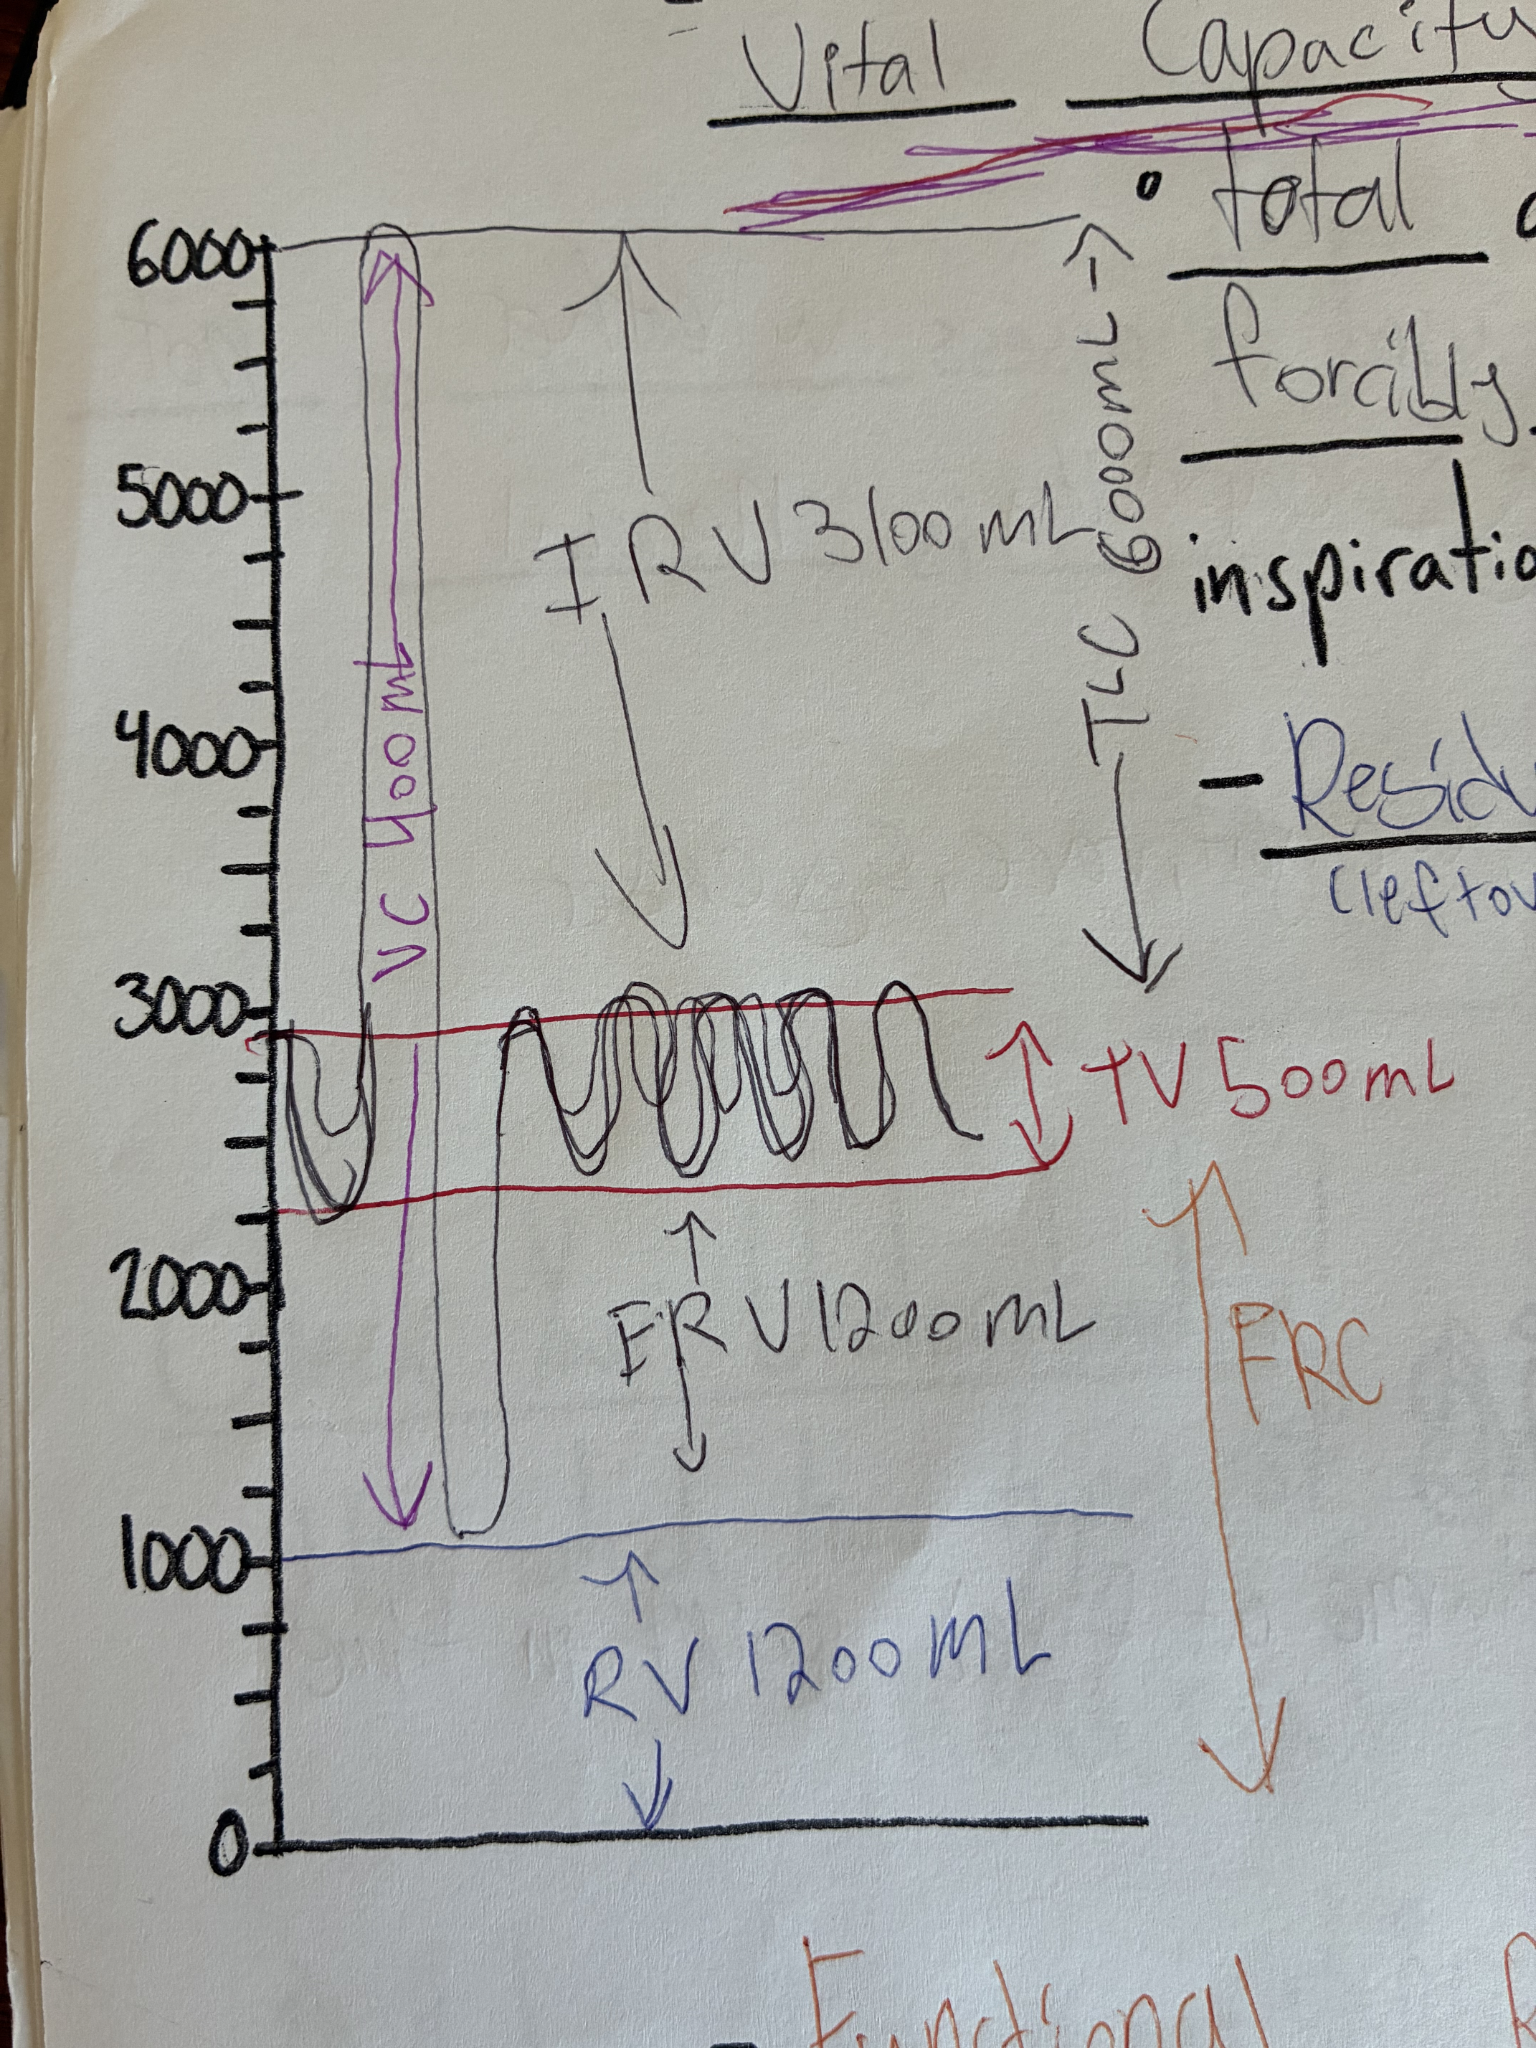 Vital Capacity
• total
forcibly
inspiratio
- Residu
(leftov
6000
5000
4000
3000
2000
1000
0
VC 400mL
IRV 3100mL
TLC 6000mL
TV 500mL
ERV 1200mL
FRC
RV 1200mL
- Functional R